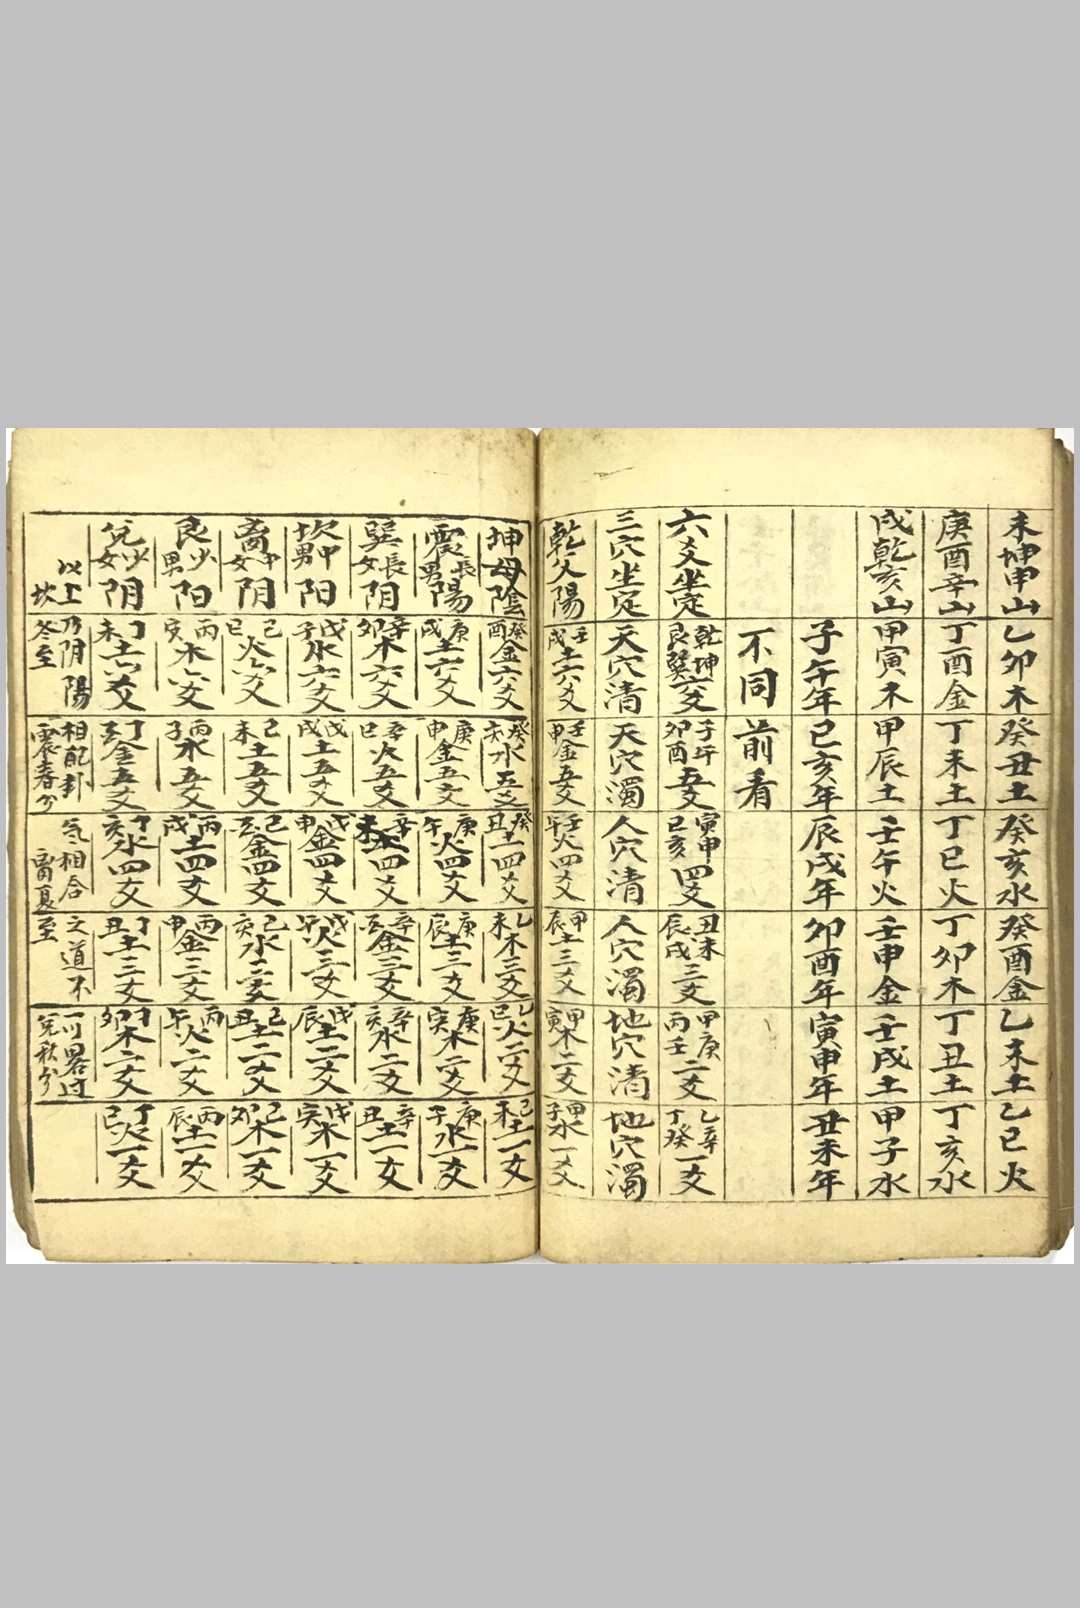 未坤申山 乙卯木 癸丑土 癸亥水 癸酉金 乙未土 乙巳火
庚酉辛山 丁酉金 丁未土 丁巳火 丁卯木 丁丑土 丁亥水
戌乾亥山 甲寅木 甲辰土 壬午火 壬申金 壬戌土 甲子水
子午年 巳亥年 辰戌年 卯酉年 寅申年 丑未年
不同 前看
六爻坐定 乾坤艮巽六爻 子午卯酉五爻 寅申巳亥四爻 丑未辰戌三爻 甲庚丙壬二爻 乙辛丁癸一爻
三穴坐定 天穴清 天穴濁 人穴清 人穴濁 地穴清 地穴濁
乾父陽 壬戌土六爻 壬申金五爻 壬午火四爻 甲辰土三爻 甲寅木二爻 甲子水一爻
坤母陰 癸酉金六爻 癸亥水五爻 癸丑土四爻 乙未木三爻 乙巳火二爻 己未土一爻
震長男陽 庚戌土六爻 庚申金五爻 庚午火四爻 庚辰土三爻 庚寅木二爻 庚子水一爻
巽長女阴 辛卯木六爻 辛巳火五爻 辛未木四爻 辛亥金三爻 辛亥水二爻 辛丑土一爻
坎中男阳 戊子水六爻 戊戌土五爻 戊申金四爻 戊午火三爻 戊辰土二爻 戊寅木一爻
离中女阴 己巳火六爻 己未土五爻 己亥金四爻 己亥水三爻 己丑土二爻 己卯木一爻
艮少男阳 丙寅木六爻 丙子水五爻 丙戌土四爻 丙申金三爻 丙午火二爻 丙辰土一爻
兌少女阴 丁未土六爻 丁亥金五爻 丁亥水四爻 丁丑土三爻 丁卯木二爻 丁巳火一爻
以上乃阴陽相配卦気相合之道不可畧过
坎冬至 震春分 离夏至 兌秋分